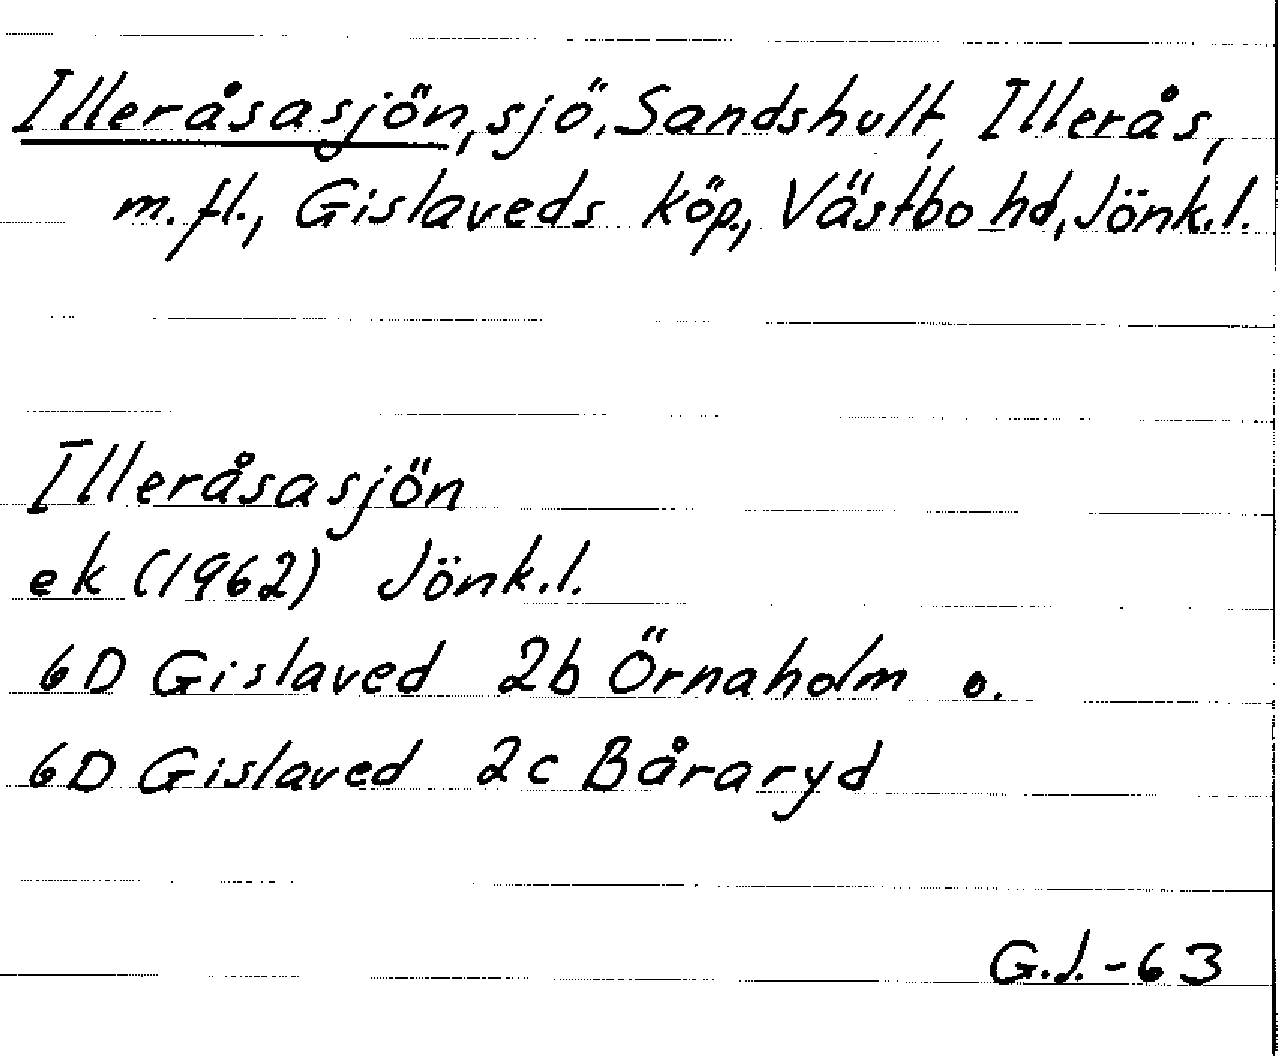 Illeråsasjön, sjö, Sandshult, Illerås,
m. fl., Gislaveds köp., Västbo hd, Jönk. l.
Illeråsasjön
ek (1962) Jönk. l.
6D Gislaved 2b Örnaholm o.
6D Gislaved 2c Båraryd
G.J. -63